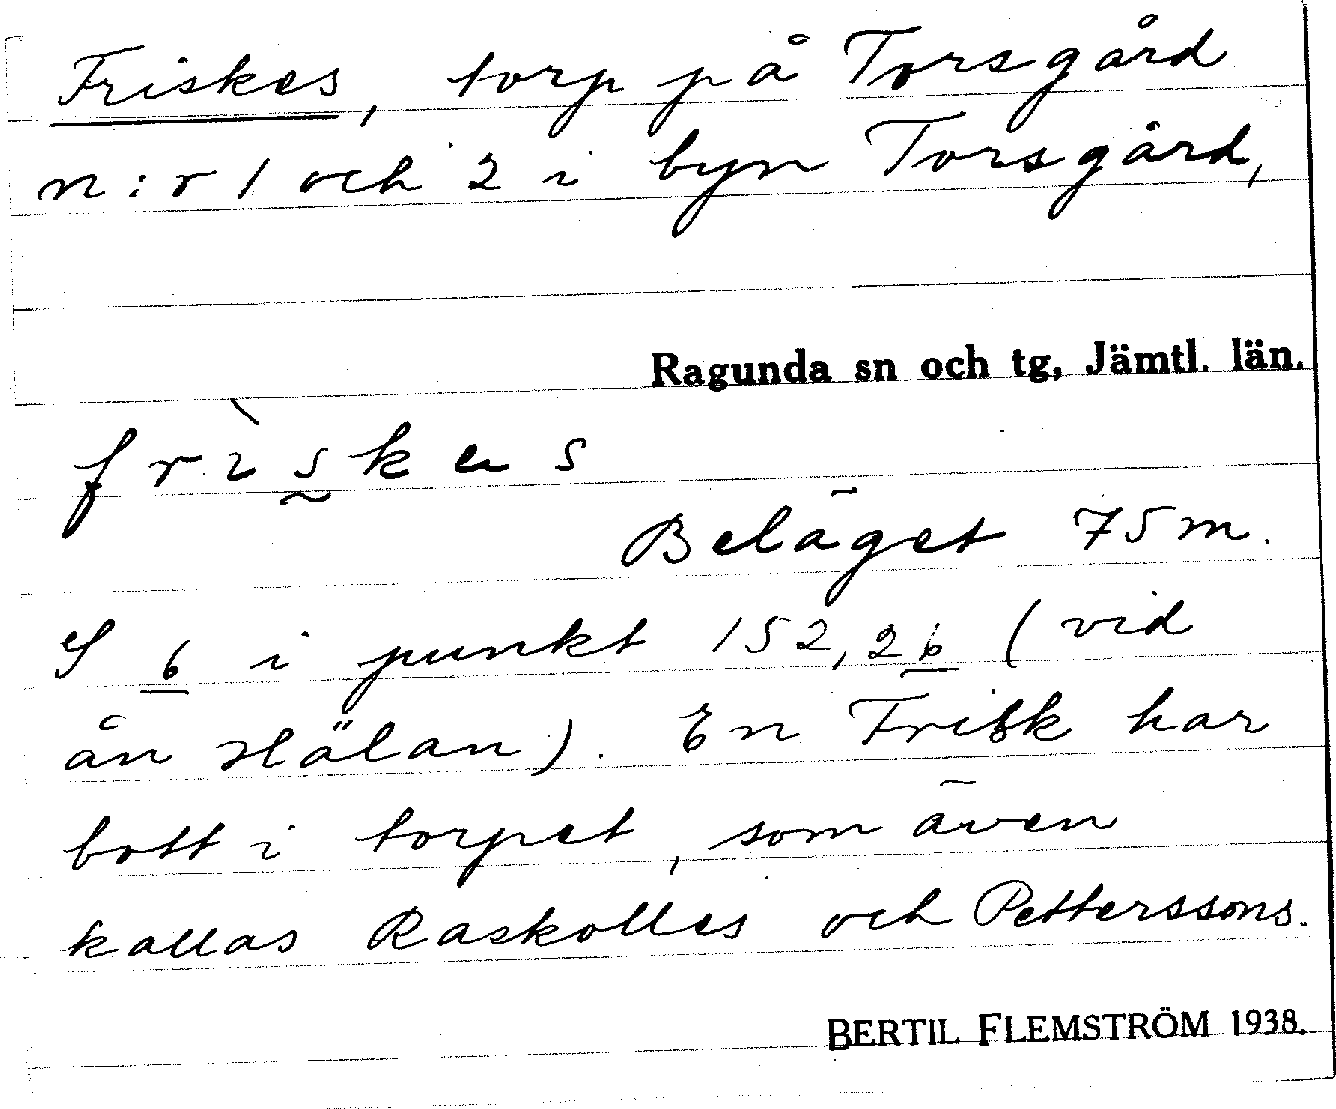 Friskes, torp på Torsgård
n:r 1 och 2 i byn Torsgård,
Ragunda sn och tg, Jämtl. län.
frìs̰kes
Beläget 75 m.
S 6 i punkt 152,26 (vid
ån Hälan). En Frisk har
bott i torpet, som även
kallas Raskolles och Petterssons.
BERTIL FLEMSTRÖM 1938.